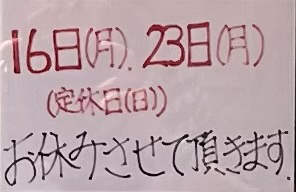 16日(月).23日(月)
(定休日(日))
お休みさせて頂きます.